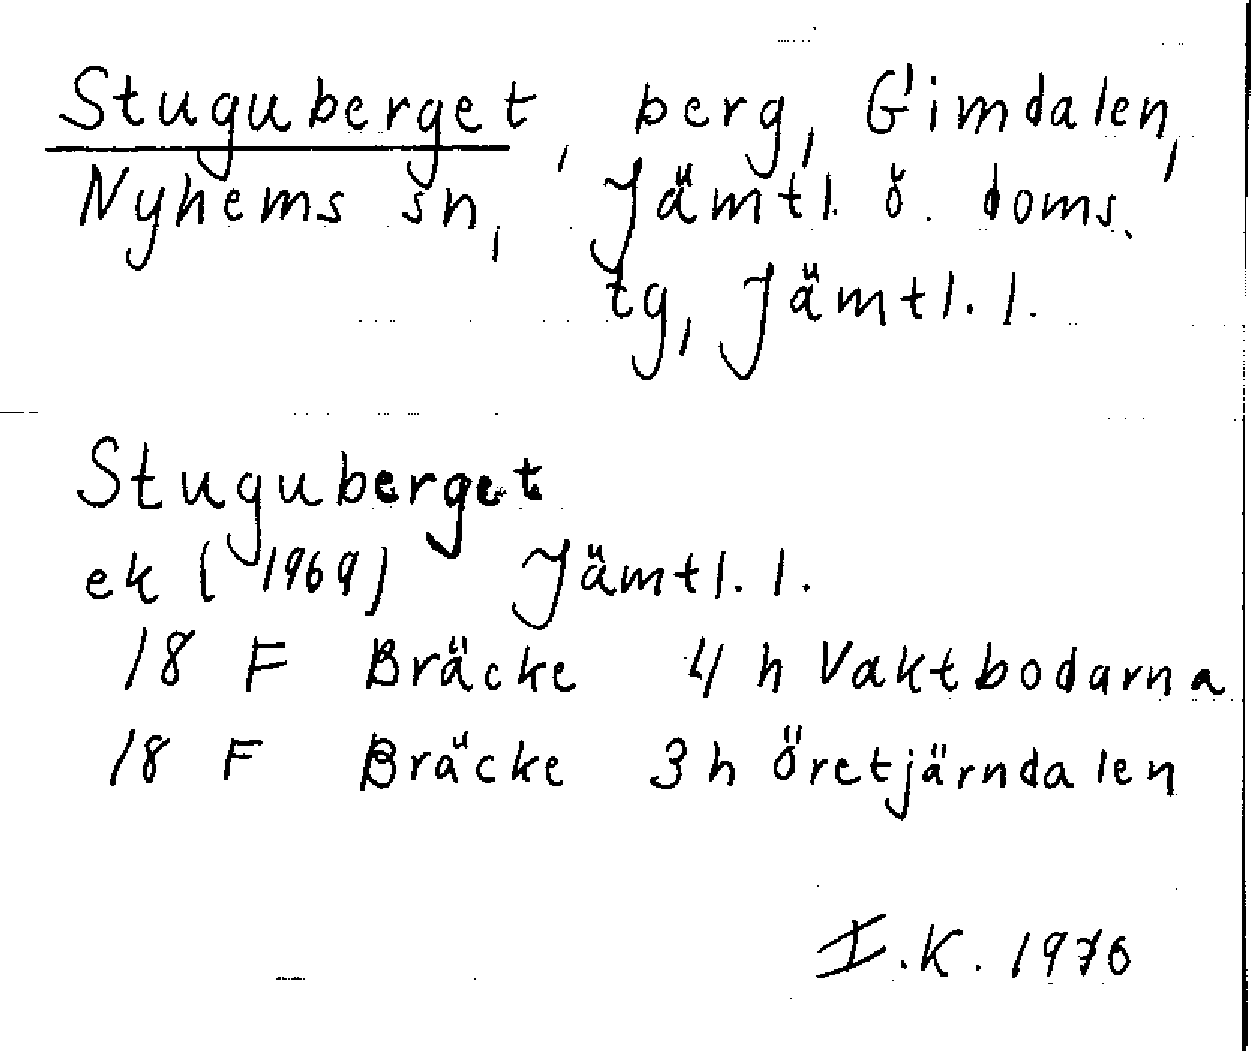 Stuguberget, berg, Gimdalen,
Nyhems sn, Jämtl. ö. doms.
tg, Jämtl. l.
Stuguberget
ek (1969) Jämtl. l.
18 F Bräcke 4 h Vaktbodarna
18 F Bräcke 3 h Öretjärndalen
I.K. 1970